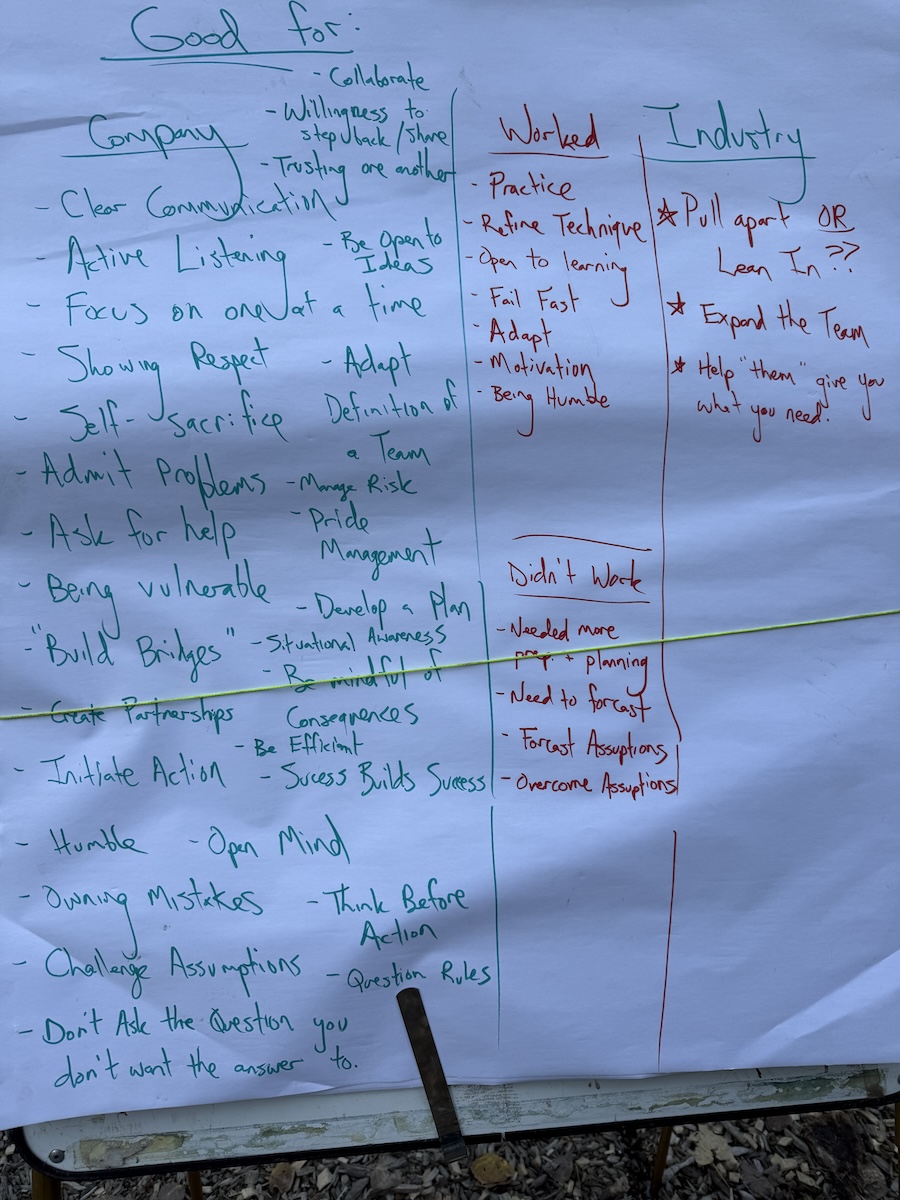 Good for:
Company
- Collaborate
- Willingness to
step back / share
- Trusting one another
- Clear Communication
- Active Listening
- Be Open to
Ideas
- Focus on one at a time
- Showing Respect
- Adapt
- Self-sacrifice
Definition of
a Team
- Admit Problems
- Manage Risk
- Ask for help
- Pride
Management
- Being vulnerable
- Develop a Plan
- "Build Bridges"
- Situational Awareness
- Be mindful of
Consequences
- Create Partnerships
- Be Efficient
- Initiate Action
- Sucess Builds Success
- Humble
- Open Mind
- Owning Mistakes
- Think Before
Action
- Challenge Assumptions
- Question Rules
- Don't Ask the Question you
don't want the answer to.
Worked
- Practice
- Refine Technique
- Open to learning
- Fail Fast
- Adapt
- Motivation
- Being Humble
Didn't Work
- Needed more
prep. + planning
- Need to forcast
- Forcast Assuptions
- Overcome Assuptions
Industry
☆ Pull apart OR
Lean In??
☆ Expand the Team
☆ Help "them" give you
what you need.